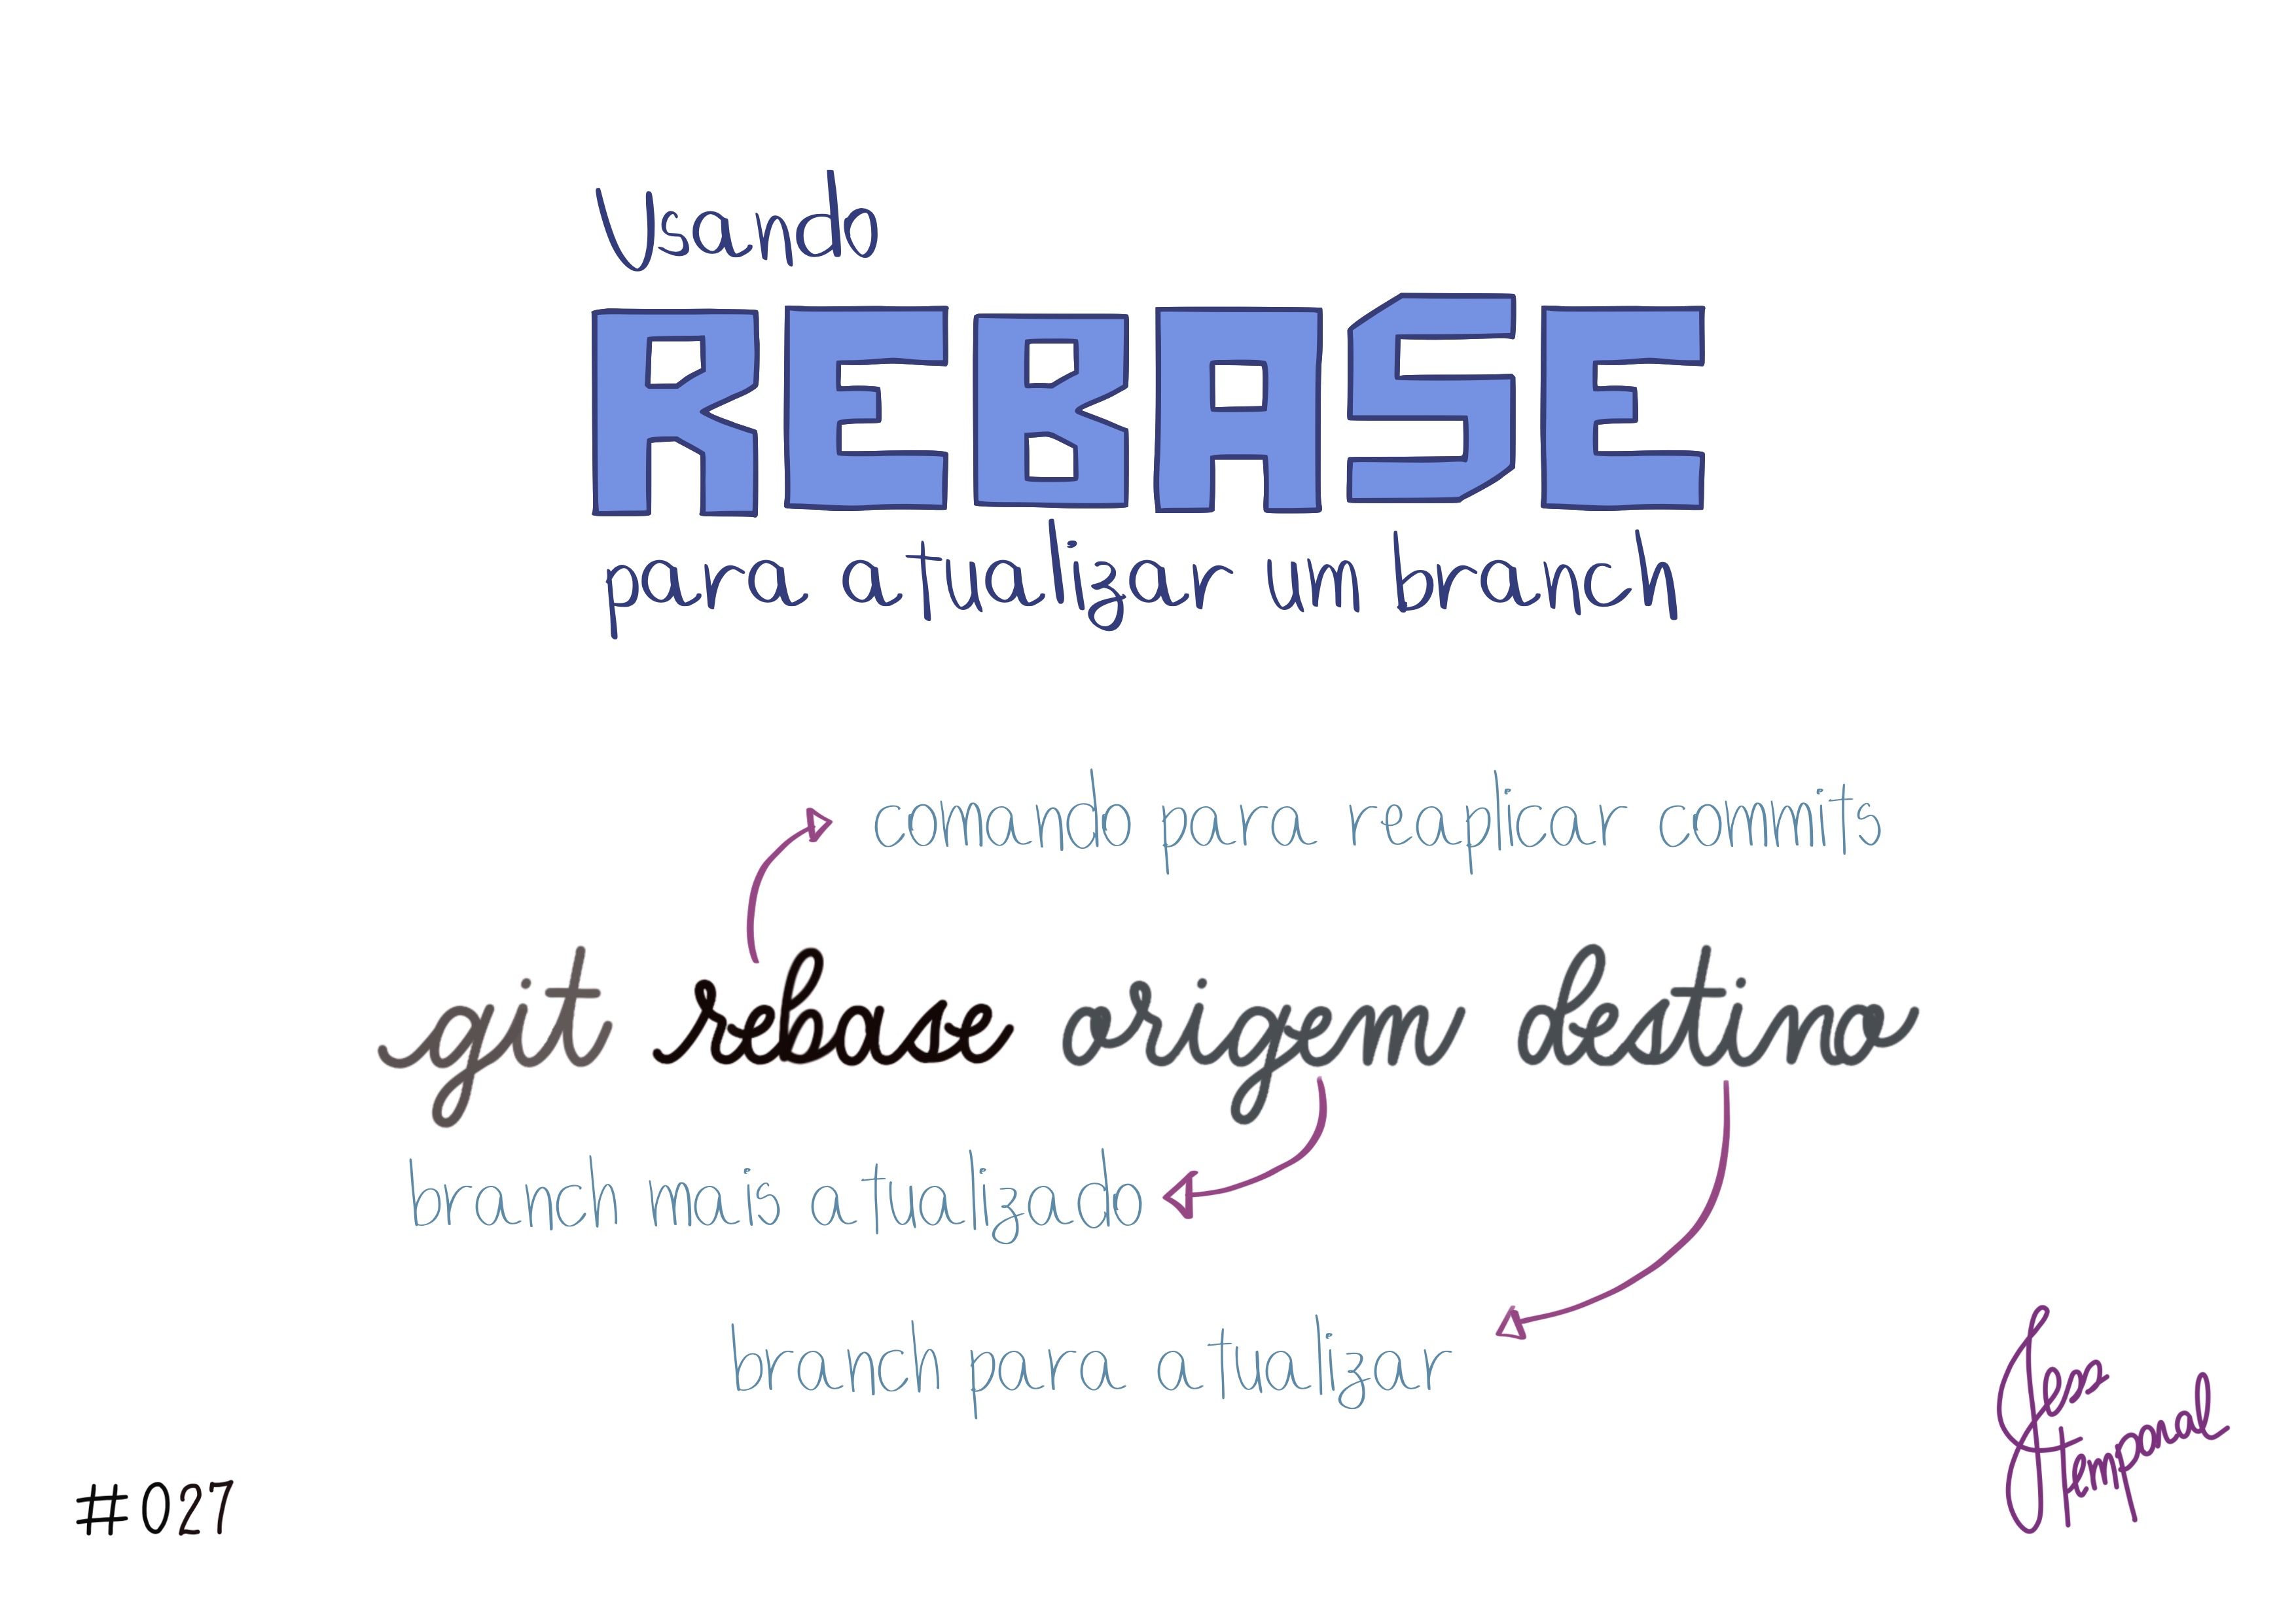 Usando
REBASE
para atualizar um branch
comando para reaplicar commits
git rebase origem destino
branch mais atualizado
branch para atualizar
#027
Jess
temporal